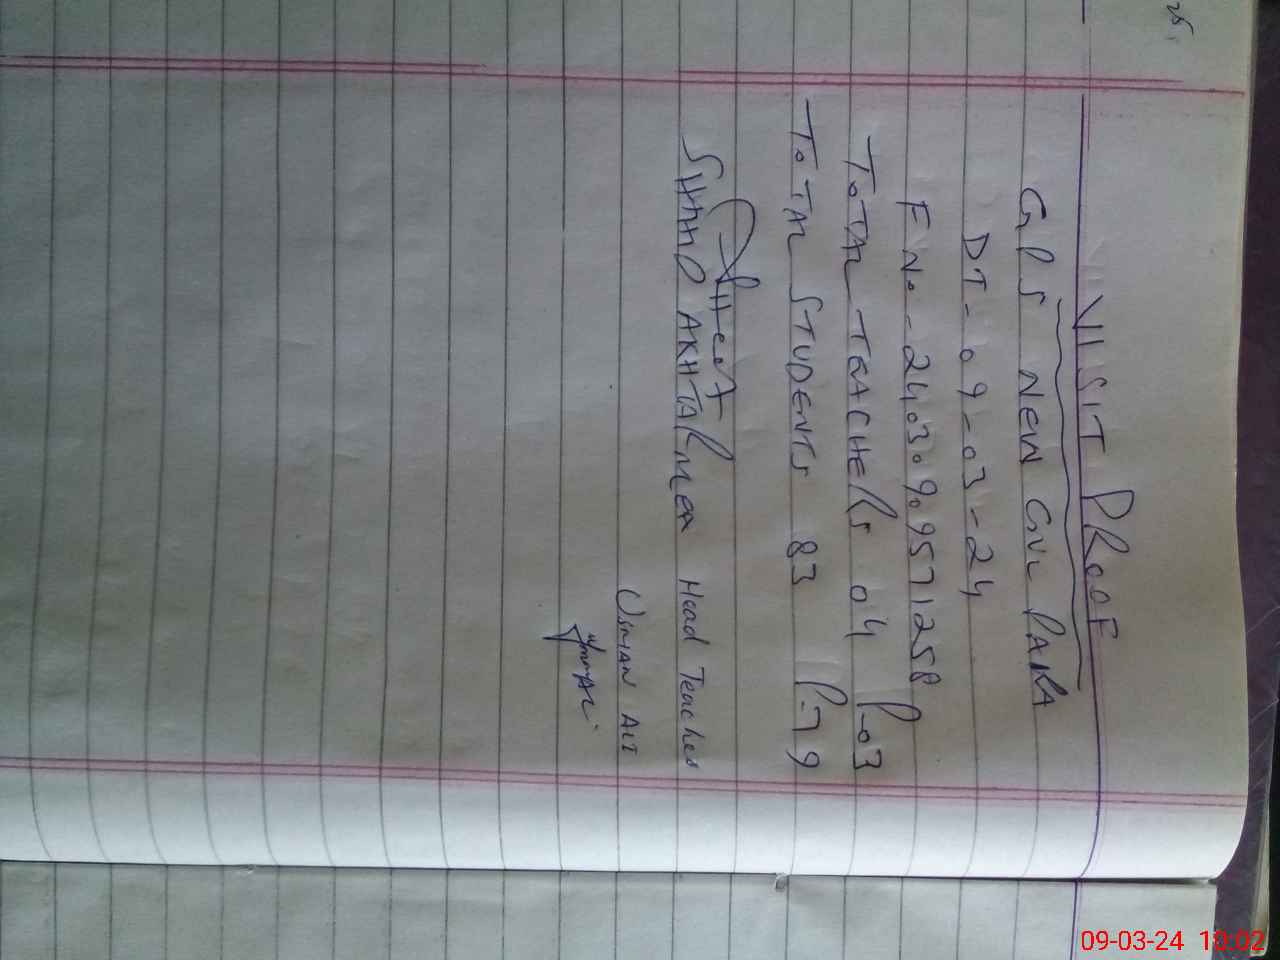 VISIT PROOF
GPS NEW GUL PARA
DT-09-03-24
F No - 24030909571258
TOTAL TEACHERS 04 P-03
TOTAL STUDENTS 83 P-79
SHAHD AKHTAR MEA Head Teacher
USMAN ALI
09-03-24 10:02